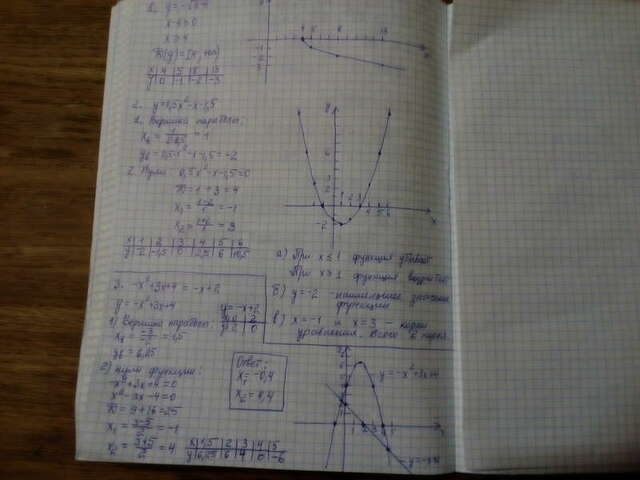 x ≥ 4
x | 4 | 5 | 8 | 13
y | 0 | -1 | -2 | -3
2. y=0,5x²-x-1,5
1. Вершина параболы:
x₀ = = 1
y₀=0,5·1²-1-1,5=-2
2. Нули: 0,5x²-x-1,5=0
D=1+3=4
x₁ = = -1
x₂ = = 3
x | 1 | 2 | 3 | 4 | 5 | 6
y | -2 | -1,5 | 0 | 2,5 | 6 | 10,5
а) При x ≤ 1 функция убывает
При x ≥ 1 функция
б) y=-2 - наименьшее значение функции
в) x=-1 и x=3 - корни уравнения. Всего 2 корня.
3. -x²+3x+4 = -x+2
y=-x²+3x+4
y=-x+2
1) Вершина параболы:
x₀ = = 1,5
y₀ = 6,25
2) Нули функции:
-x²+3x+4=0
x²-3x-4=0
D=9+16=25
x₁ = (3-5)/2 = -1
x₂ = (3+5)/2 = 4
x | 1,5 | 2 | 3 | 4 | 5
y | 6,25 | 6 | 4 | 0 | -6
Ответ:
x₁ = -0,4
x₂ = 4,4
y=-x²+3x+4